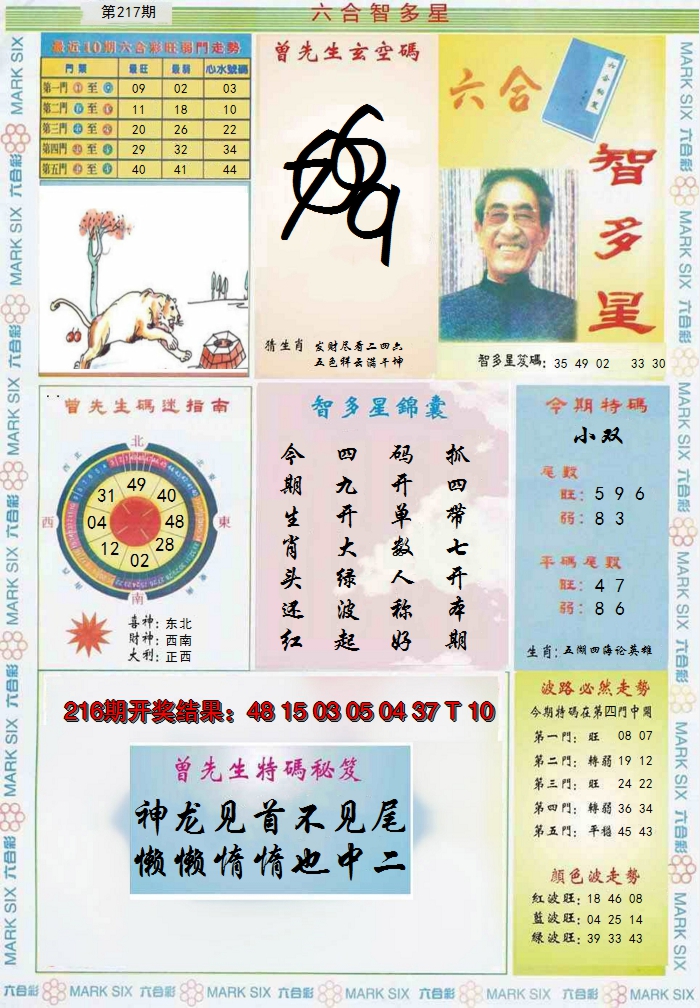 第217期
六合智多星
最近10期六合彩旺弱門走勢
門類 最旺 最弱 心水號碼
第一門 至 09 02 03
第二門 至 11 18 10
第三門 至 20 26 22
第四門 至 29 32 34
第五門 至 40 41 44
曾先生玄空碼
猜生肖 发财尽看二四六
五色祥云满乾坤
六合
智多星
智多星笈碼: 35 49 02 33 30
曾先生碼迷指南
北
西
東
南
31 49 40
04 48
12 02 28
喜神: 东北
财神: 西南
大利: 正西
智多星錦囊
抓四带七开本期
码开单数人称好
四九开大绿波起
今期生肖头还红
今期特碼
小双
尾数
旺: 5 9 6
弱: 8 3
平碼尾数
旺: 4 7
弱: 8 6
生肖: 五湖四海论英雄
216期开奖结果: 48 15 03 05 04 37 T 10
曾先生特碼秘笈
神龙见首不见尾
懒懒惰惰也中二
波路必然走势
今期特碼在第四門中開
第一門: 旺 08 07
第二門: 轉弱 19 12
第三門: 旺 24 22
第四門: 轉弱 36 34
第五門: 平穩 45 43
顏色波走勢
紅波旺: 18 46 08
藍波旺: 04 25 14
綠波旺: 39 33 43
MARK SIX 六合彩